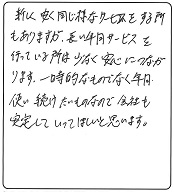 新しく安く同じ様なサービスをする所
もありますが、長い年月サービスを
行っている所は少なく安心につながり
ます。一時的なものでなく年月
使い続けたいものなので会社も
安定していってほしいと思います。